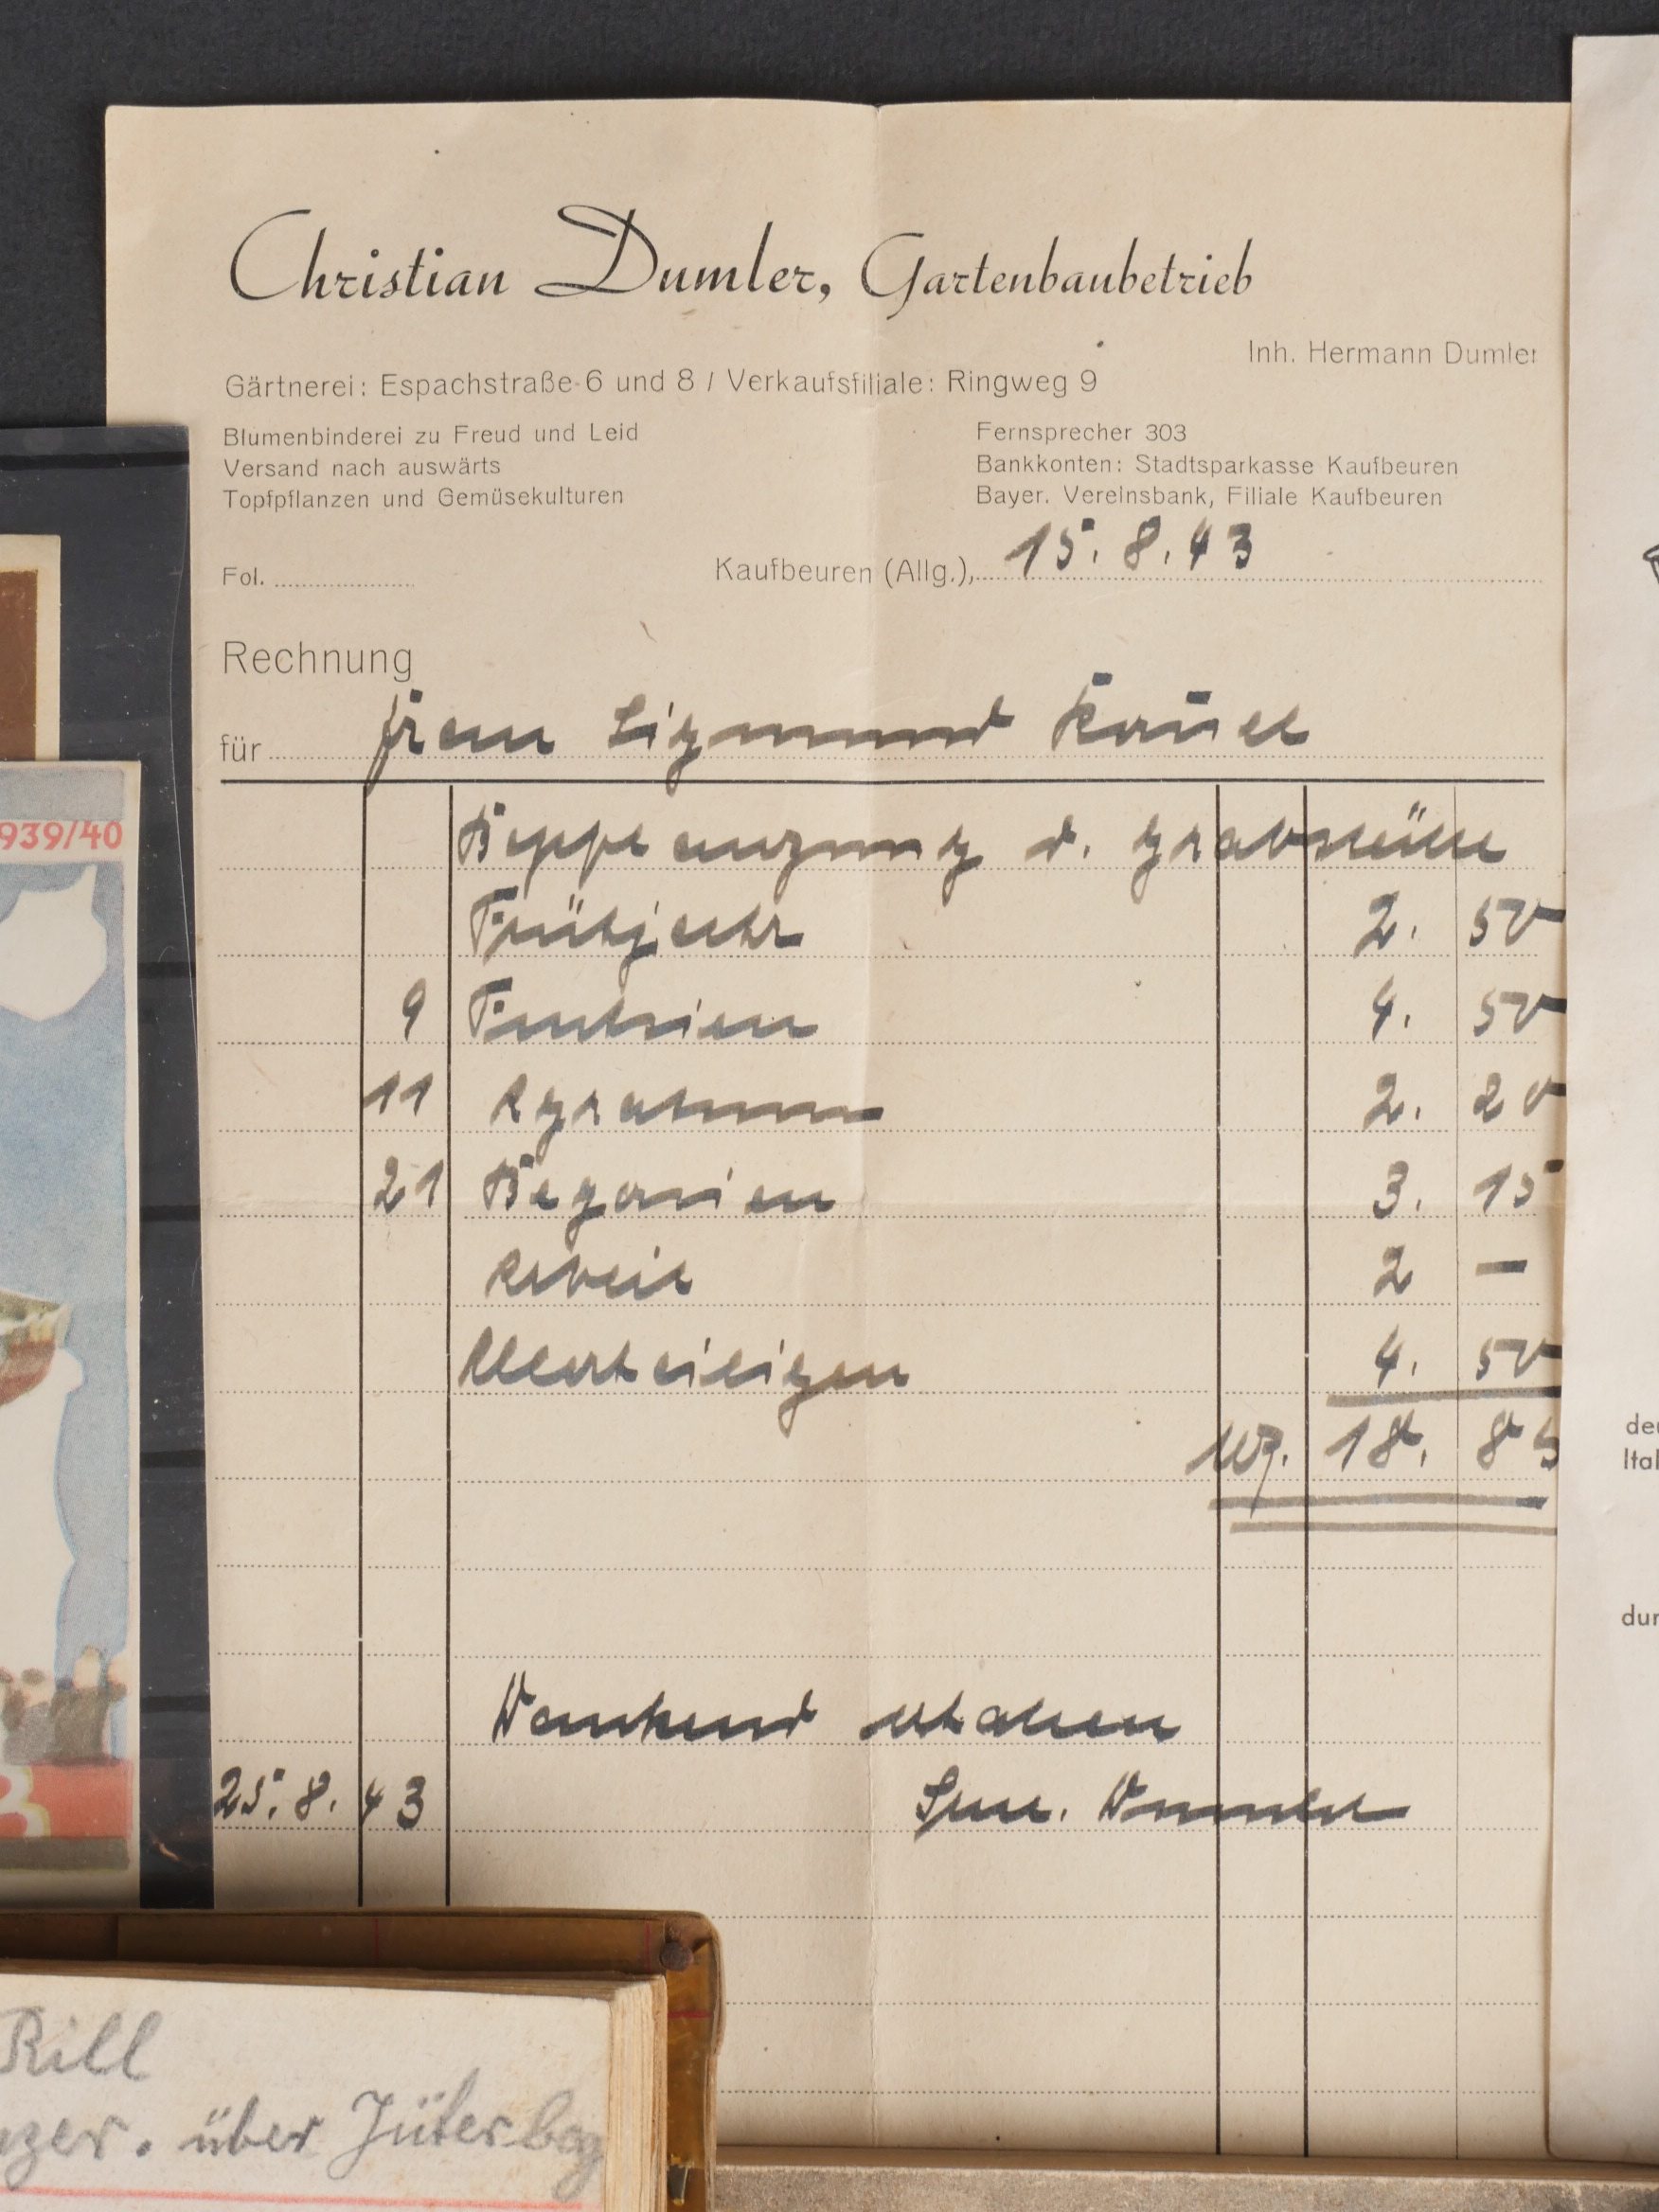 Christian Dumler, Gartenbaubetrieb
Inh. Hermann Dumler
Gärtnerei: Espachstraße 6 und 8 / Verkaufsfiliale: Ringweg 9
Blumenbinderei zu Freud und Leid
Versand nach auswärts
Topfpflanzen und Gemüsekulturen
Fernsprecher 303
Bankkonten: Stadtsparkasse Kaufbeuren
Bayer. Vereinsbank, Filiale Kaufbeuren
Fol.
Kaufbeuren (Allg.), 15.8.43
Rechnung
für Frau Sigmund
Beppflanzung d. Grabstätte
Frühjahr 2. 50
9 Fuchsien 4. 50
11 Ageratum 2. 20
21 Begonien 3. 15
Arbeit 2 —
Allerheiligen 4. 50
M. 18. 85
Dankend erhalten
25.8.43 Dumler
939/40
Rill
über Jüterbog